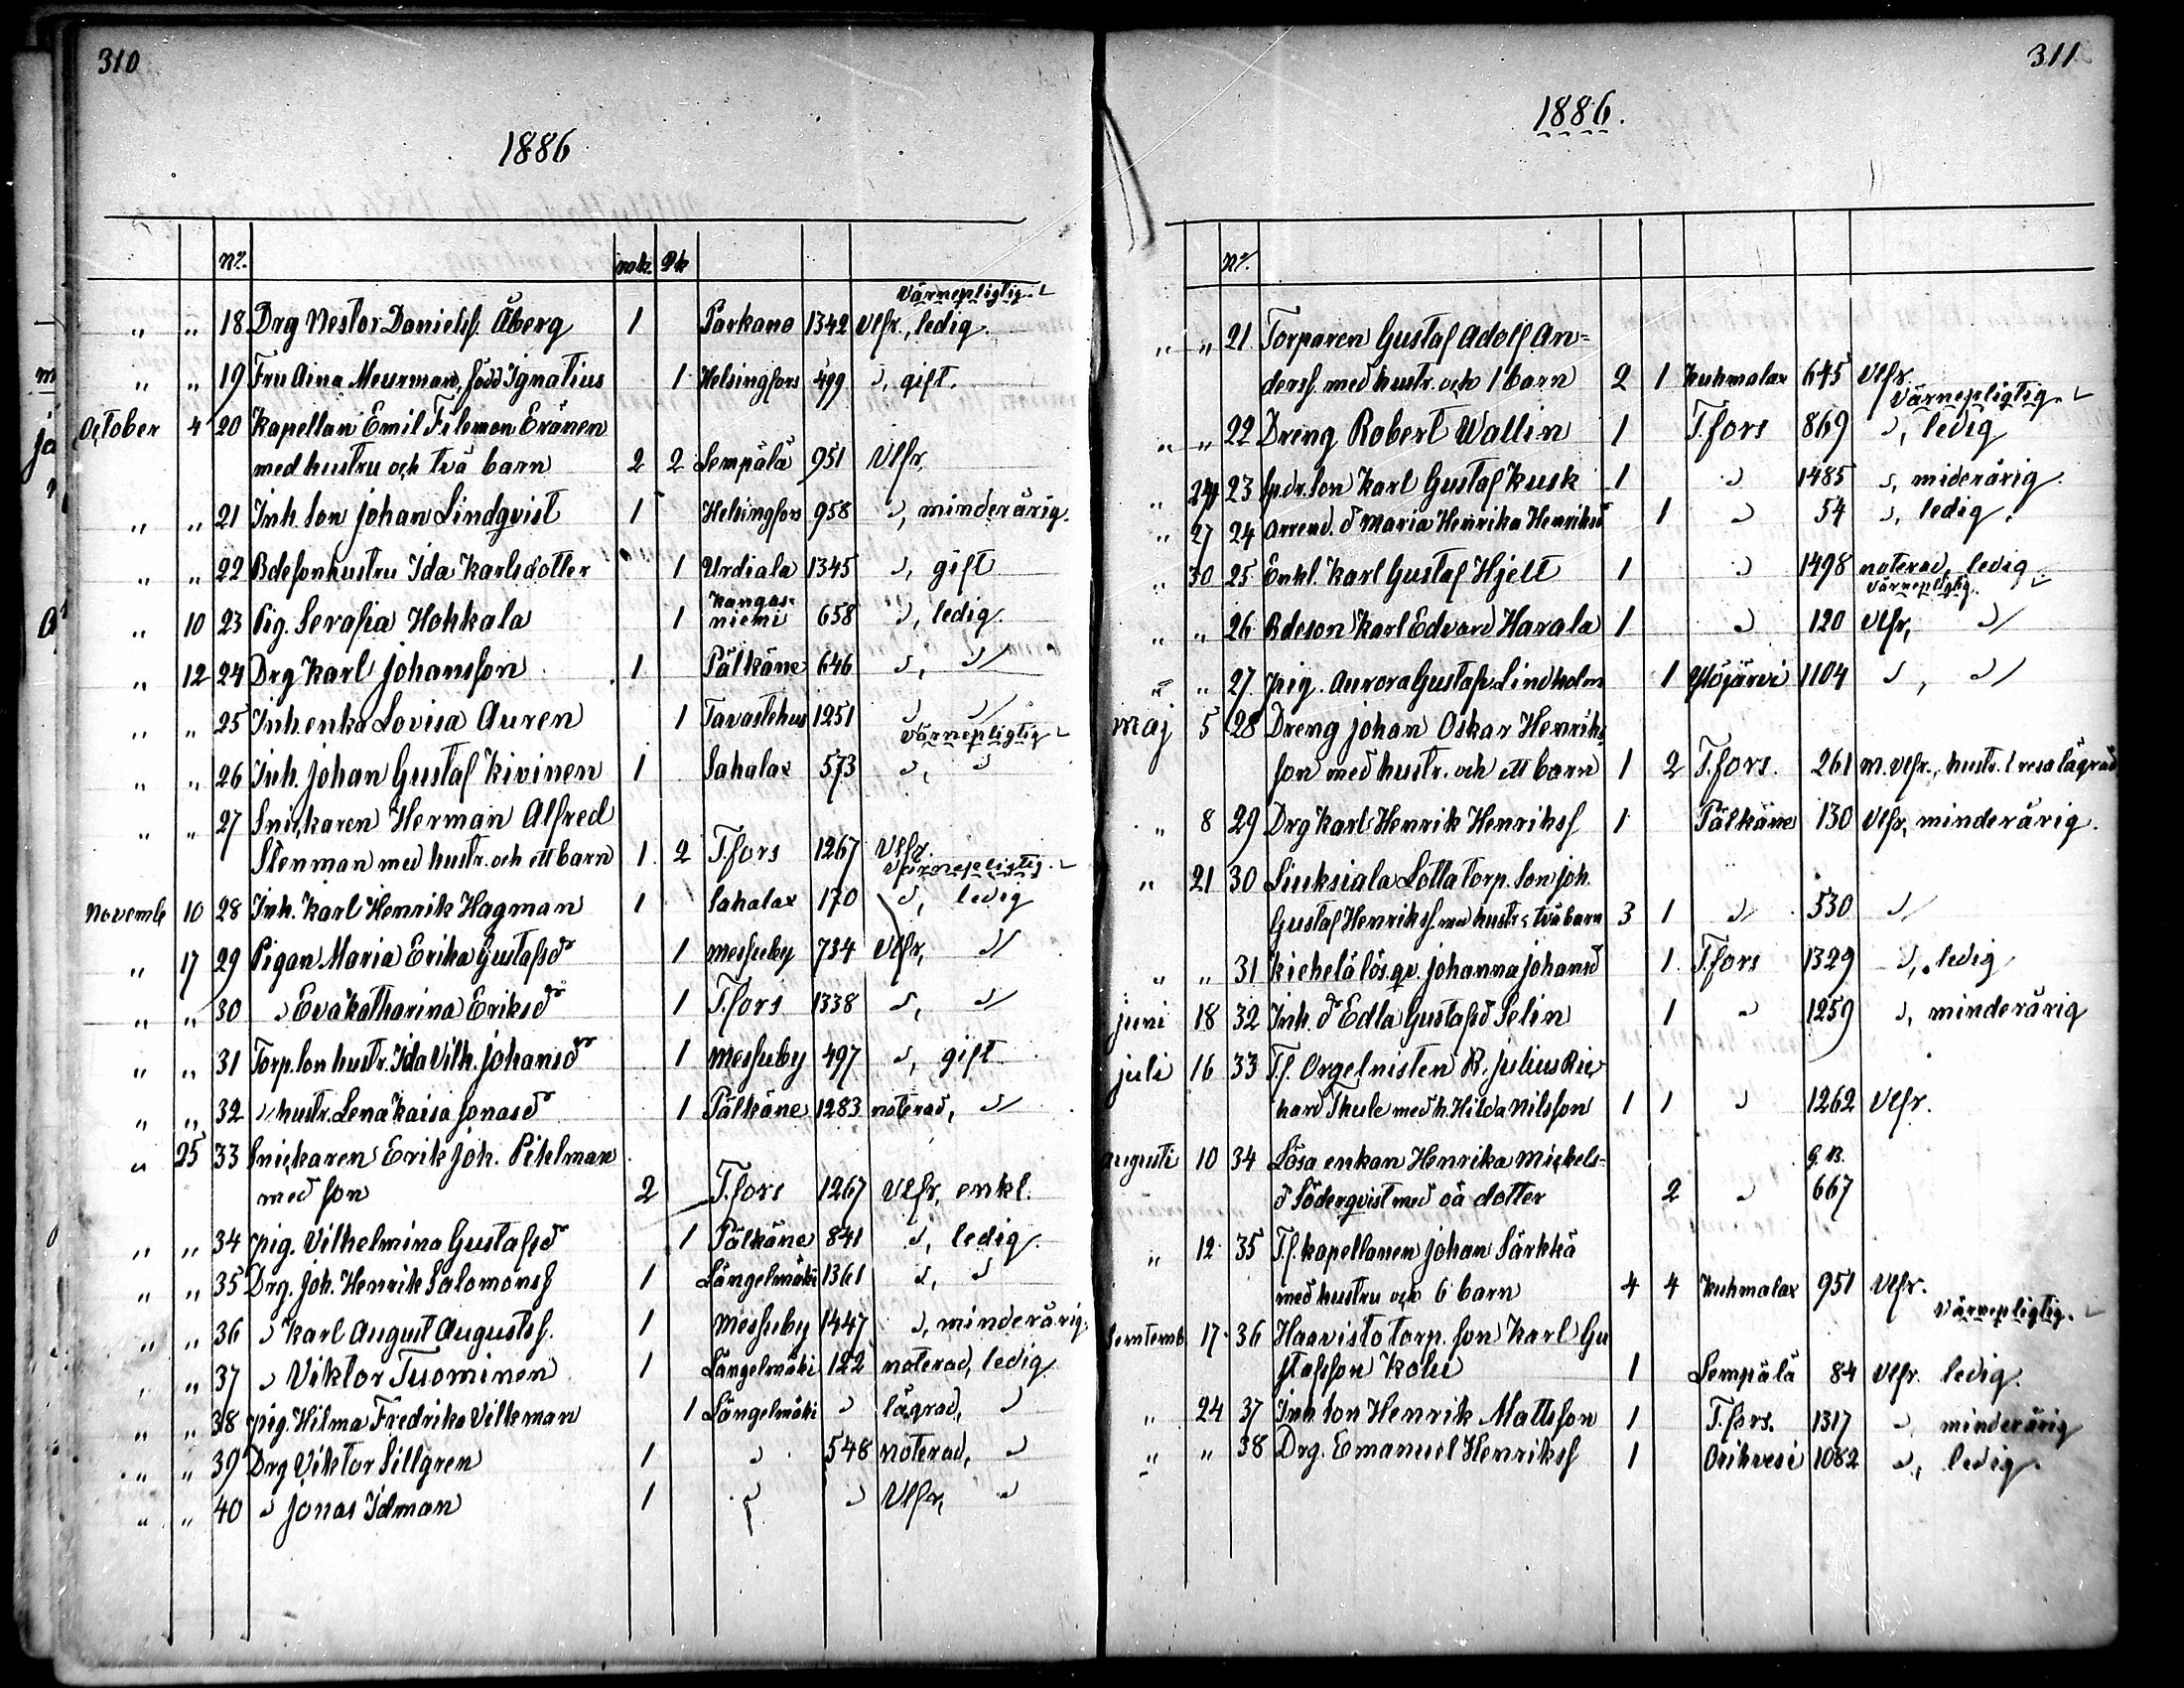 310
1886
No. mk. Qk
Värnepligtig.
" " 18 Drg Nestor Danielss. Åberg 1 Parkano 1342 Vlfr., ledig.
" " 19 Fru Aina Meurman, född Ignatius 1 Helsingfors 499 ", gift.
October 4 20 Kapellan Emil Filemon Eränen
med hustru och två barn 2 2 Lempälä 951 Vlfr,
" " 21 Inh. son Johan Lindqvist 1 Helsingfors 958 ", minderårig.
" " 22 Bdesonhustru Ida Karlsdotter 1 Urdiala 1345 ", gift
" 10 23 Pig. Serafia Hohkala 1 Kangas-
niemi 658 ", ledig.
" 12 24 Drg Karl Johansson 1 Pälkäne 646 ", "
" " 25 Inh. enka Lovisa Auren 1 Tavastehus 1251 " "
Värnepligtig
" " 26 Inh. Johan Gustaf Kivinen 1 Sahalax 573 ", "
" " 27 Snickaren Herman Alfred
Stenman med hustr. och ett barn 1 2 T.fors 1267 Vlfr.
Värnepligtig.
Novemb 10 28 Inh. Karl Henrik Hagman 1 Sahalax 170 ", ledig
" 17 29 Pigan Maria Erika Gustafsdr 1 Messuby 734 Vlfr, "
" " 30 " Eva Katharina Eriksdr 1 T.fors 1338 ", "
" " 31 Torp. son hustr. Ida Vilh. Johansdr 1 Messuby 497 ", gift
" " 32 " hustr. Lena Kaisa Jonasd 1 Pälkäne 1283 noterad, "
" 25 33 Snickaren Erik Joh. Pihlman
med son 2 T.fors 1267 Vlfr, enkl.
" " 34 pig. Vilhelmina Gustafsd 1 Pälkäne 841 ", ledig.
" " 35 Drg. Joh. Henrik Salomonss 1 Längelmäki 1361 ", "
" " 36 " Karl August Augustss. 1 Messuby 1447 ", minderårig.
" " 37 " Viktor Tuominen 1 Längelmäki 122 noterad, ledig
" " 38 pig. Hilma Fredrika Vilkman 1 Längelmäki " lägrad, "
" " 39 Drg Viktor Sillgren 1 " 548 noterad, "
" " 40 " Jonas Idman 1 " " Vlfr, "
311
1886.
No.
" " 21 Torparen Gustaf Adolf An=
derss. med hustr. och 1 barn 2 1 Kuhmalax 645 Vlfr
Värnepligtig.
" " 22 Dreng Robert Wallin 1 T.fors 869 ", ledig
" 24 23 son Karl Gustaf Kusk 1 " 1485 ", miderårig.
" 27 24 Arrend. d Maria Henrika Henriksd 1 " 54 ", ledig.
" 30 25 Enkl. Karl Gustaf Hjelt 1 " 1498 noterad, ledig
Värnepligtig.
" " 26 Bdeson Karl Edvard Harala 1 " 120 Vlfr, "
" " 27 pig. Aurora Gustafs. Lindholm 1 Ylöjärvi 1104 ", "
Maj 5 28 Dreng Johan Oskar Henriks
son med hustr. och ett barn 1 2 T.fors. 261 M. Vlfr., hustr. 1 resa lägrad
" 8 29 Drg Karl Henrik Henrikss 1 Pälkäne 130 Vlfr, minderårig.
" 21 30 Liuksiala Lotta torp. son Joh.
Gustaf Henrikss. med hustr. o. två barn 3 1 " 530 "
" " 31 Kichelä lös. qv. Johanna Johansd 1 T.fors 1329 ", ledig
Juni 18 32 Inh. dr Edla Gustafsd Selin 1 " 1259 ", minderårig
Juli 16 33 T.f. Orgelnisten R. Julius Ric
hard Thule med h. Hilda Nilsson 1 1 " 1262 Vlfr.
Augusti 10 34 Lösa enkan Henrika Mickels= G. B.
d Söderqvist med oä dotter 2 " 667
" 12 35 T.f. Kapellanen Johan Särkkä
med hustru och 6 barn 4 4 Kuhmalax 951 Vlfr.
Värnepligtig.
Septemb 17 36 Haavisto torp. son Karl Gu
stafsson Kolu 1 Lempälä 84 Vlfr. ledig.
" 24 37 Inh. son Henrik Mattsson 1 T.fors. 1317 ", minderårig
" " 38 Drg. Emanuel Henrikss 1 Orihvesi 1082 ", ledig.